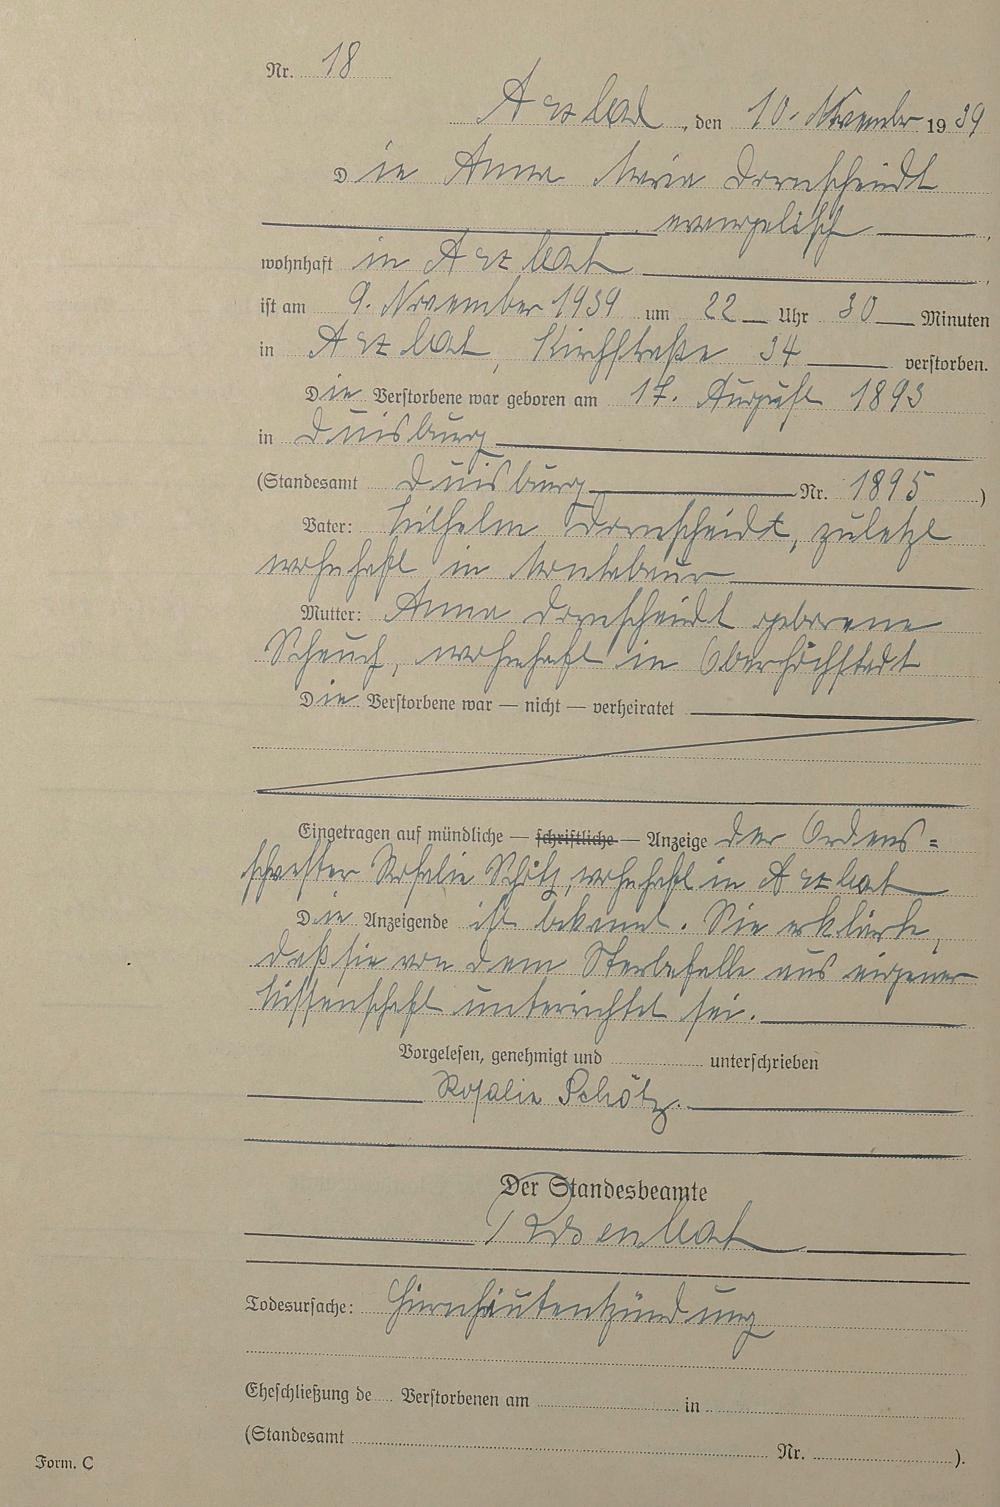 Nr. 18
Arzbach, den 10. November 1939
Die Anna Maria Dornscheidt
evangelisch
wohnhaft in Arzbach
ist am 9. November 1939 um 22 Uhr 30 Minuten
in Arzbach, Kirchstraße 34 verstorben.
Die Verstorbene war geboren am 17. August 1893
in Duisburg
(Standesamt Duisburg Nr. 1895)
Vater: Wilhelm Dornscheidt, zuletzt
wohnhaft in Montabaur
Mutter: Anna Dornscheidt geborene
Scheuch, wohnhaft in Oberhöchstadt
Die Verstorbene war — nicht — verheiratet
Eingetragen auf mündliche — schriftliche — Anzeige der Ordens=
schwester Rosalie Schötz, wohnhaft in Arzbach
Die Anzeigende ist bekannt. Sie erklärte,
daß sie von dem Sterbefalle aus eigener
Wissenschaft unterrichtet sei.
Vorgelesen, genehmigt und unterschrieben
Rosalie Schötz.
Der Standesbeamte
Todesursache: Hirnhäutentzündung
Eheschließung de Verstorbenen am in
(Standesamt Nr. ).
Form. C